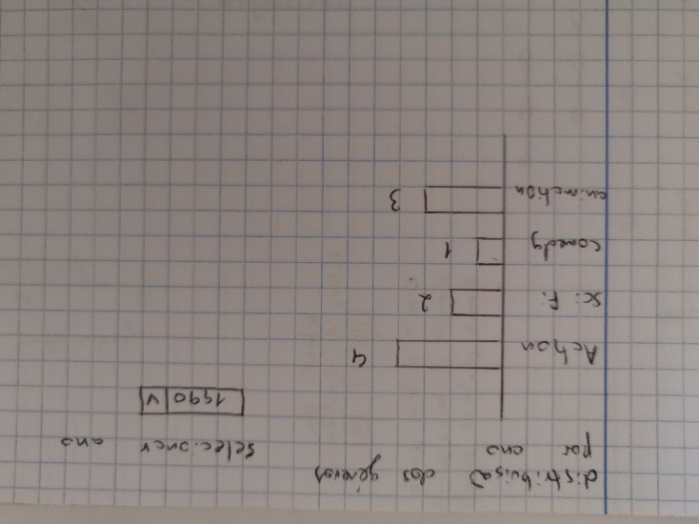 distribuisaõ dos géneros
por ano
selecionar ano
1990 V
Action 4
Sci Fi 2
Comedy 1
animation 3